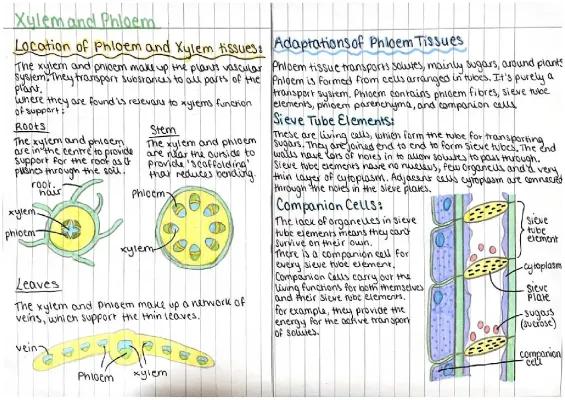 Xylem and Phloem
Location of Phloem and Xylem tissues:
The xylem and phloem make up the plants vascular
system. They transport substances to all parts of the
plant.
Where they are found is relevant to xylems function
of support:
Roots
The xylem and phloem
are in the centre to provide
support for the root as it
pushes through the soil.
root hair
xylem
phloem
Stem
The xylem and phloem
are near the outside to
provide 'scaffolding'
that reduces bending.
phloem
xylem
Leaves
The xylem and phloem make up a network of
veins, which support the thin leaves.
vein
Phloem
xylem
Adaptations of Phloem Tissues
Phloem tissue transports solutes, mainly sugars, around plants
Phloem is formed from cells arranged in tubes. It's purely a
transport system. Phloem contains phloem fibres, sieve tube
elements, phloem parenchyma, and companion cells.
Sieve Tube Elements:
These are living cells, which form the tube for transporting
sugars. They are joined end to end to form sieve tubes. The end
walls have lots of holes in to allow solutes to pass through.
Sieve tube elements have no nucleus, few organells and a very
thin layer of cytoplasm. Adjacent cells cytoplasm are connected
through the holes in the sieve plates.
Companion Cells:
The lack of organelles in sieve
tube elements means they can't
survive on their own.
There is a companion cell for
every sieve tube element.
Companion Cells carry out the
living functions for both themselves
and their sieve tube elements.
for example, they provide the
energy for the active transport
of solutes.
sieve
tube
element
cytoplasm
sieve
plate
sugars
(sucrose)
companion
cell